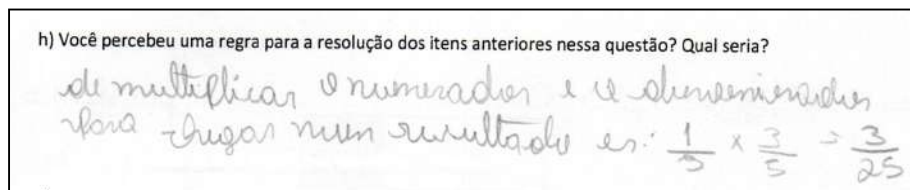 h) Você percebeu uma regra para a resolução dos itens anteriores nessa questão? Qual seria?
de multiplicar o numerador e o denominador
para chegar num resultado ex: 1/5 x 3/5 = 3/25